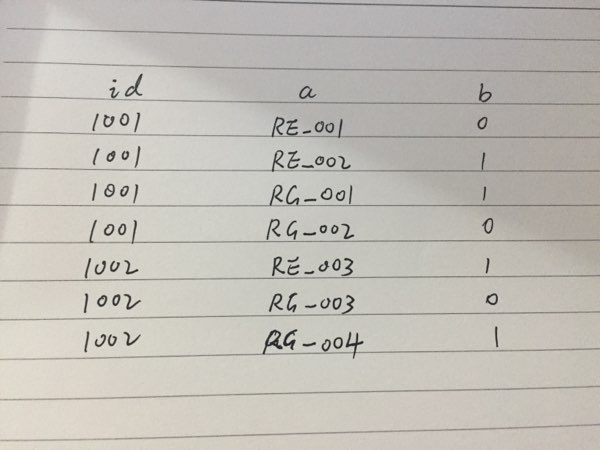 id a b
1001 RE_001 0
1001 RE_002 1
1001 RG_001 1
1001 RG_002 0
1002 RE_003 1
1002 RG_003 0
1002 RG_004 1